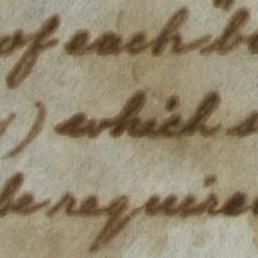 of each
) which
be require